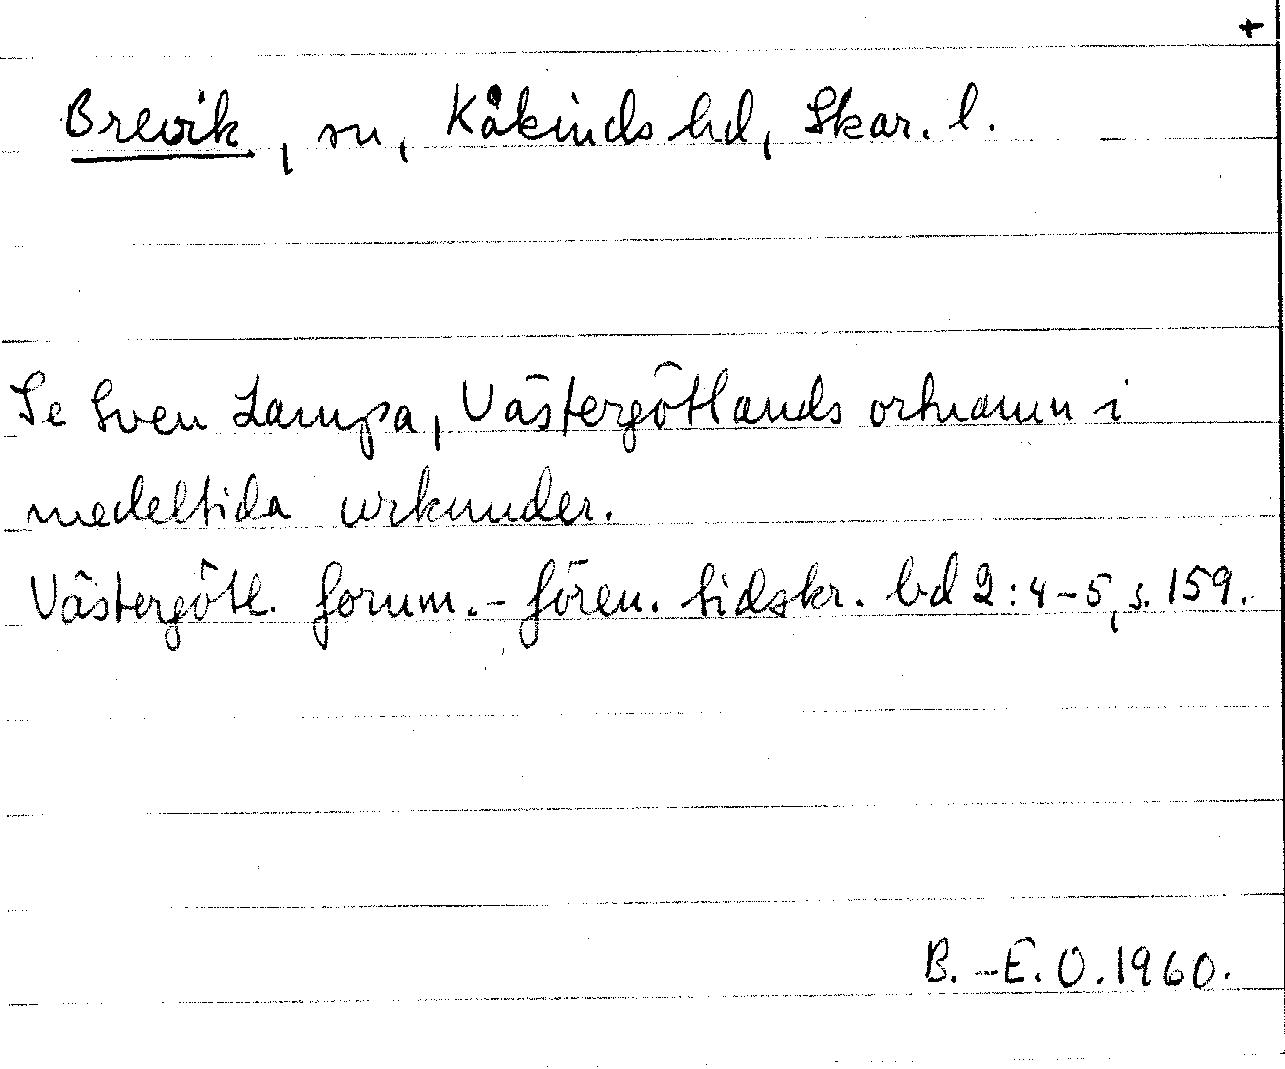 +
Brevik, sn, Kåkinds hd, Skar. l.
Se Sven Lampa, Västergötlands ortnamn i
medeltida urkunder.
Västergötl. fornm.-fören. tidskr. bd 2:4-5, s. 159.
B.-E. O. 1960.